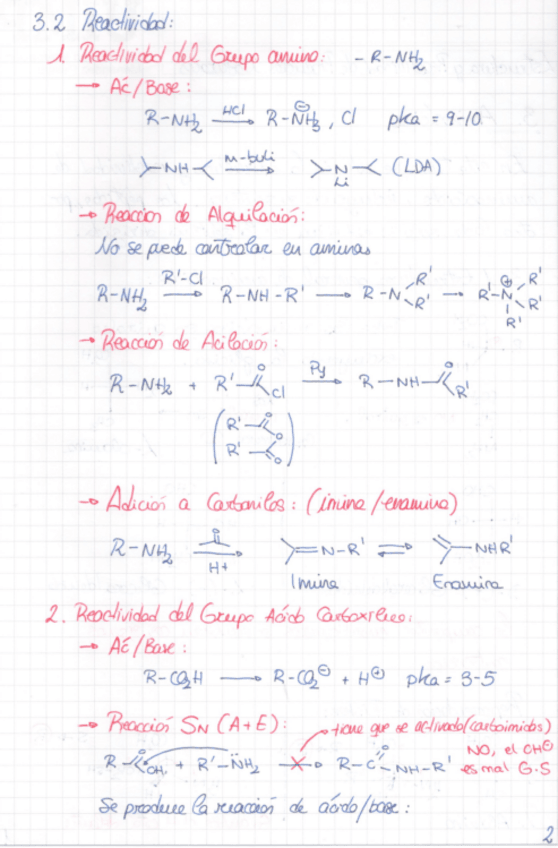 3.2 Reactividad:
1. Reactividad del Grupo amino: - R-NH2
→ Ác/Base:
R-NH2 —HCl→ R-NH3⊖, Cl pka = 9-10
NH —n-buli→ N Li (LDA)
→ Reacción de Alquilación:
No se puede controlar en aminas
R-NH2 —R'-Cl→ R-NH-R' → R-N R' R' → R'-N⊕ R' R' R'
→ Reacción de Acilación:
R-NH2 + R' O Cl —Py→ R-NH O R'
(R' O O R' O)
→ Adición a Carbonilos: (imina/enamina)
R-NH2 —O H+→ =N-R' ⇌ NHR'
Imina Enamina
2. Reactividad del Grupo Ácido Carboxílico:
→ Ác/Base:
R-CO2H → R-CO2⊖ + H⊕ pka = 3-5
→ Reacción SN (A+E): tiene que se activado (carboimidas)
R O OH + R'-NH2 —X→ R-C O -NH-R' NO, el OH⊖
es mal G.S
Se produce la reacción de ácido/base:
2